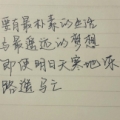 要有最朴素的生活
与最遥远的梦想
即使明日天寒地冻
路遥马亡